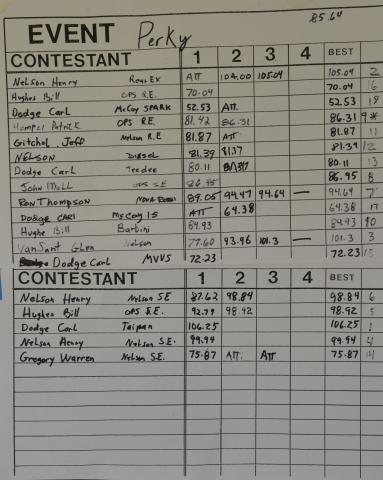 85.64
EVENT Perky
CONTESTANT 1 2 3 4 BEST
Nelson Henry ATT 104.00 105.04 105.04 2
Hughes Bill OPS S.E. 70.04 70.04 16
Dodge Carl McCoy SPARK 52.53 ATT. 52.53 18
Patrick OPS R.E. 81.42 86.31 86.31 9*
Gitchel Jeff Nelson R.E 81.87 ATT 81.87 11
NELSON DIESEL 81.39 81.37 81.39 12
Dodge Carl Teedee 80.11 80.11 13
John OPS SE 86.95 86.95 8
Ron Thompson Nova Rossi 89.05 94.47 94.64 — 94.64 7
Dodge CARL McCoy 15 ATT 64.38 64.38 17
Hughe Bill Barbini 84.93 84.93 10
VanSant Glen Nelson 77.60 93.96 101.3 — 101.3 3
Dodge Carl MVVS 72.23 72.23 15
CONTESTANT 1 2 3 4 BEST
Nelson Henry Nelson SE 87.62 98.84 98.84 6
Hughes Bill OPS S.E. 92.79 98.92 98.92 5
Dodge Carl Taipan 106.25 106.25 1
Nelson Henry Nelson S.E. 99.94 99.94 4
Gregory Warren Nelson S.E. 75.87 ATT. ATT 75.87 14